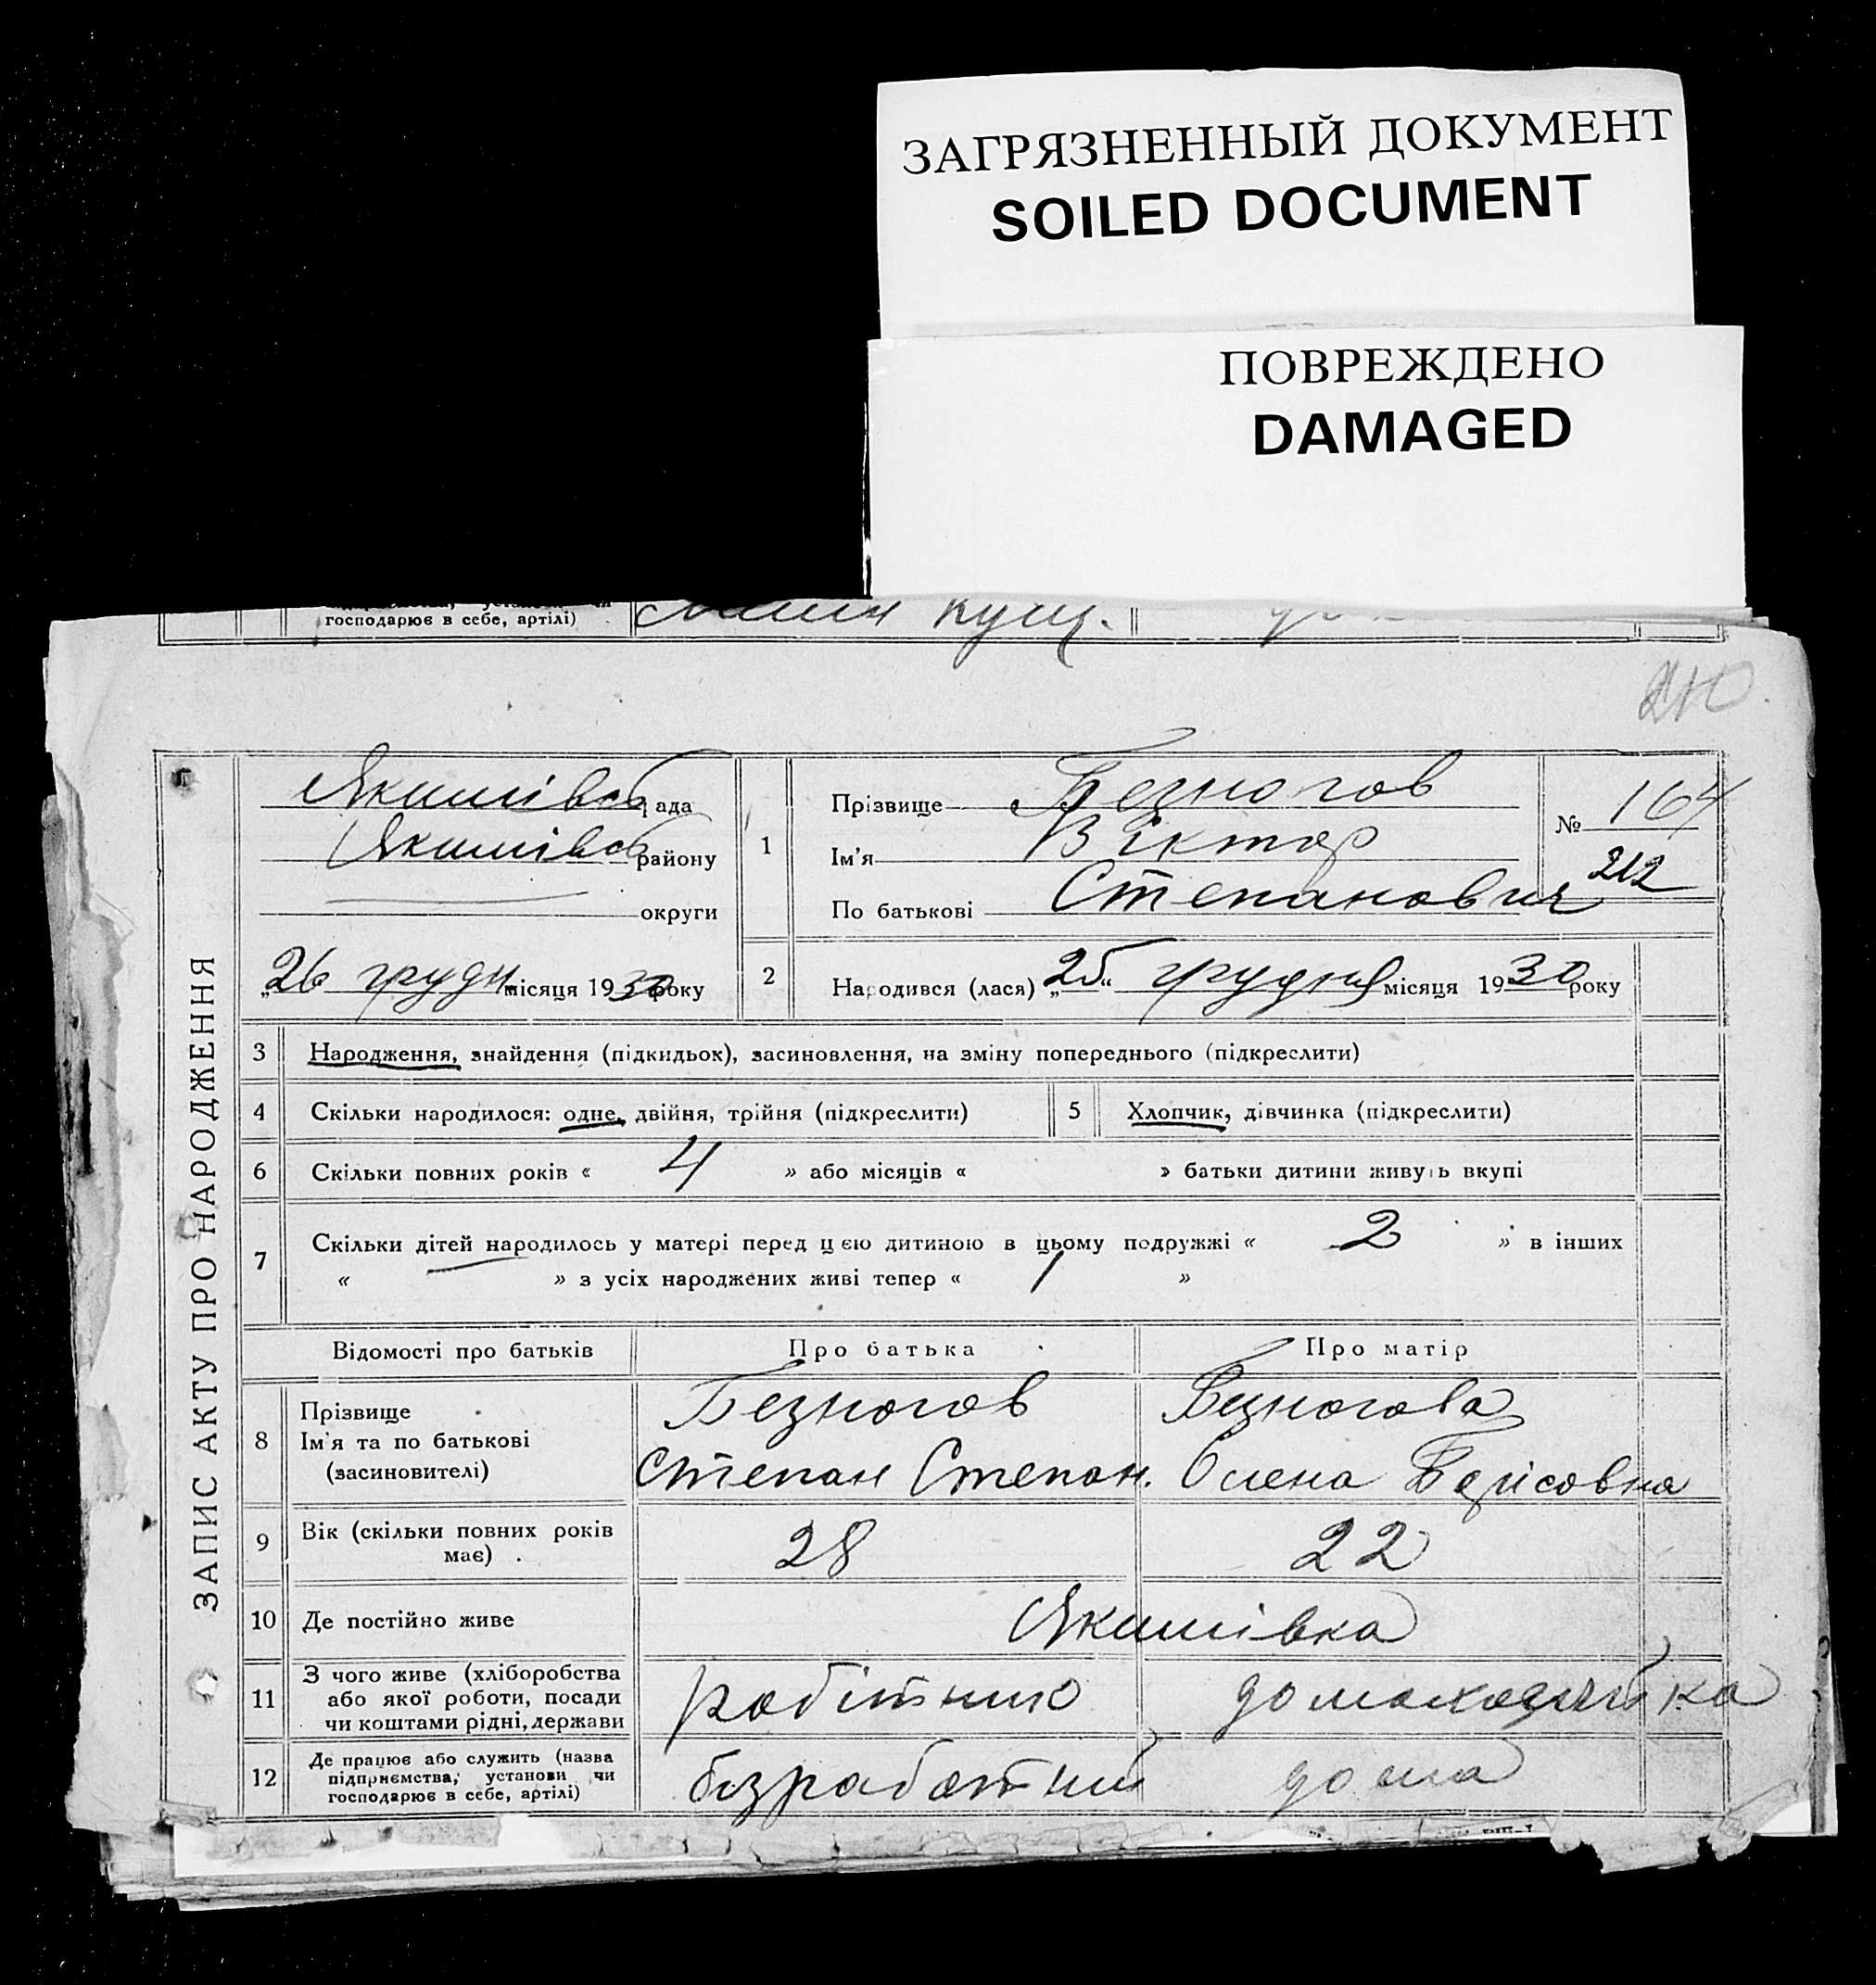 ЗАГРЯЗНЕННЫЙ ДОКУМЕНТ
SOILED DOCUMENT
ПОВРЕЖДЕНО
DAMAGED
господарює в себе, артілі)
210.
ЗАПИС АКТУ ПРО НАРОДЖЕННЯ
Якимівсь рада
Якимівсь району
округи
„26 грудн місяця 1930 року
1 Прізвище Безногов
Ім'я Віктор
По батькові Степанович
№ 164
212
2 Народився (лася) „25“ грудня місяця 1930 року
3 Народження, знайдення (підкидьок), засиновлення, на зміну попереднього (підкреслити)
4 Скільки народилося: одне, двійня, трійня (підкреслити) 5 Хлопчик, дівчинка (підкреслити)
6 Скільки повних років « 4 » або місяців « » батьки дитини живуть вкупі
7 Скільки дітей народилось у матері перед цією дитиною в цьому подружжі « 2 » в інших
« — » з усіх народжених живі тепер « 1 »
Відомості про батьків Про батька Про матір
8 Прізвище
Ім'я та по батькові
(засиновителі)
Безногов
Степан Степан.
Безногова
Олена Борісовна
9 Вік (скільки повних років
має)
28 22
10 Де постійно живе Якимівка
11 З чого живе (хліборобства
або якої роботи, посади
чи коштами рідні, держави
робітник домохозяйка
12 Де працює або служить (назва
підприємства, установи чи
господарює в себе, артілі)
безработний дома